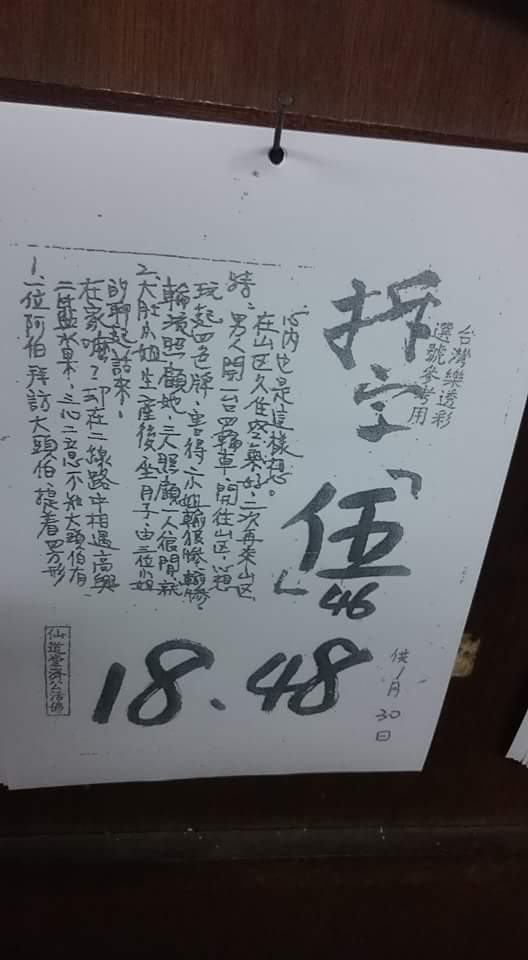 台灣樂透彩
選號參考用
拆字
「伍」
46
18.48
供1月30日
1、一位阿伯拜訪大頭伯，提着四方形
二藍水果，三心二意不知大頭伯有
在家嗎？却在二線路中相遇高興
的聊起話來。
2、大肚小姐生產後坐月子，由三位小姐
輪流照顧她，三人照顧一人很閒，就
玩起四色牌，害得小姐輸很慘，輸慘。
特、男人開一台四輪車，開往山区，心想
在山区久住空氣好，二次再來山区
心內也是這樣想。
仙道堂濟公活佛